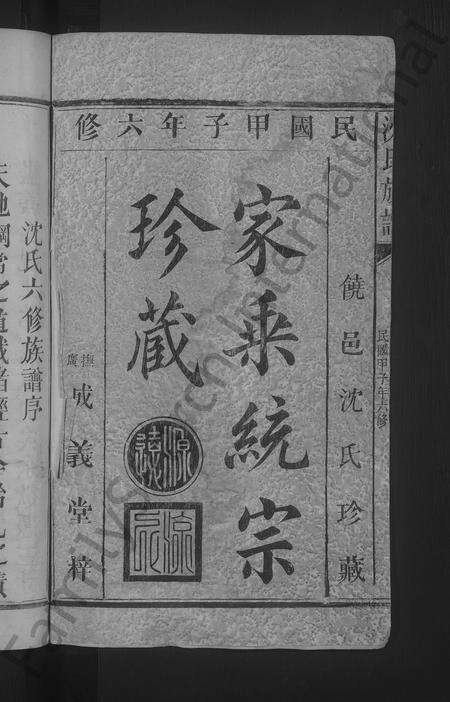 民國甲子年六修
饒邑沈氏珍藏
家乘統宗
珍藏
源遠
撫廣
成義堂梓
沈氏族譜
民國甲子年六修
沈氏六修族譜序
天地綱常之道
FamilySearch International